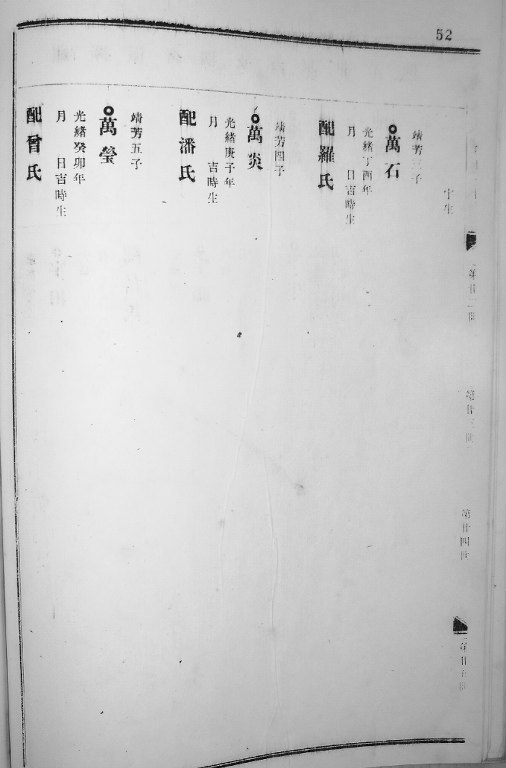 52
第廿二世
第廿三世
第廿四世
第廿五世
子生
靖芳 子
萬石
光緒丁酉年
月 日吉時生
配羅氏
靖芳四子
萬炎
光緒庚子年
月 吉時生
配潘氏
靖芳五子
萬瑩
光緒癸卯年
月 日吉時生
配曾氏